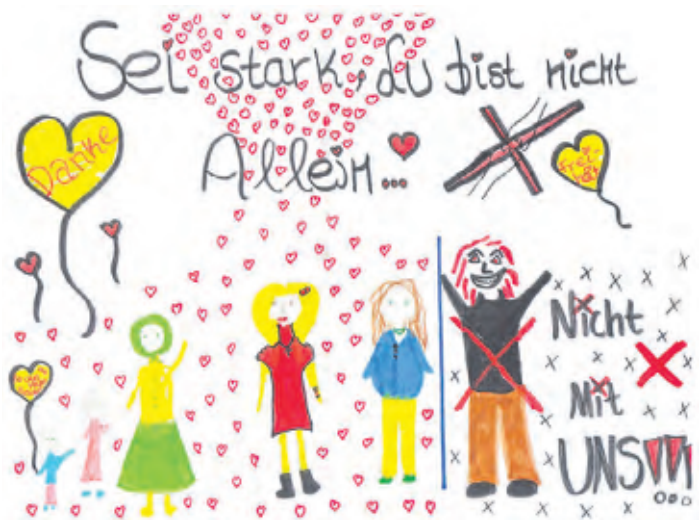 Sei stark, du bist nicht
Allein...
Danke
frei-
Nicht
Mit
UNS!!!